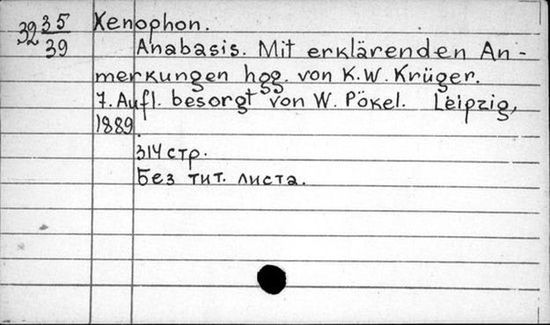 32 35/39
Xenophon.
Anabasis. Mit erklärenden An-
merkungen hgg. von K.W. Krüger.
7. Aufl. besorgt von W. Pökel. Leipzig,
1889.
314 стр.
Без тит. листа.